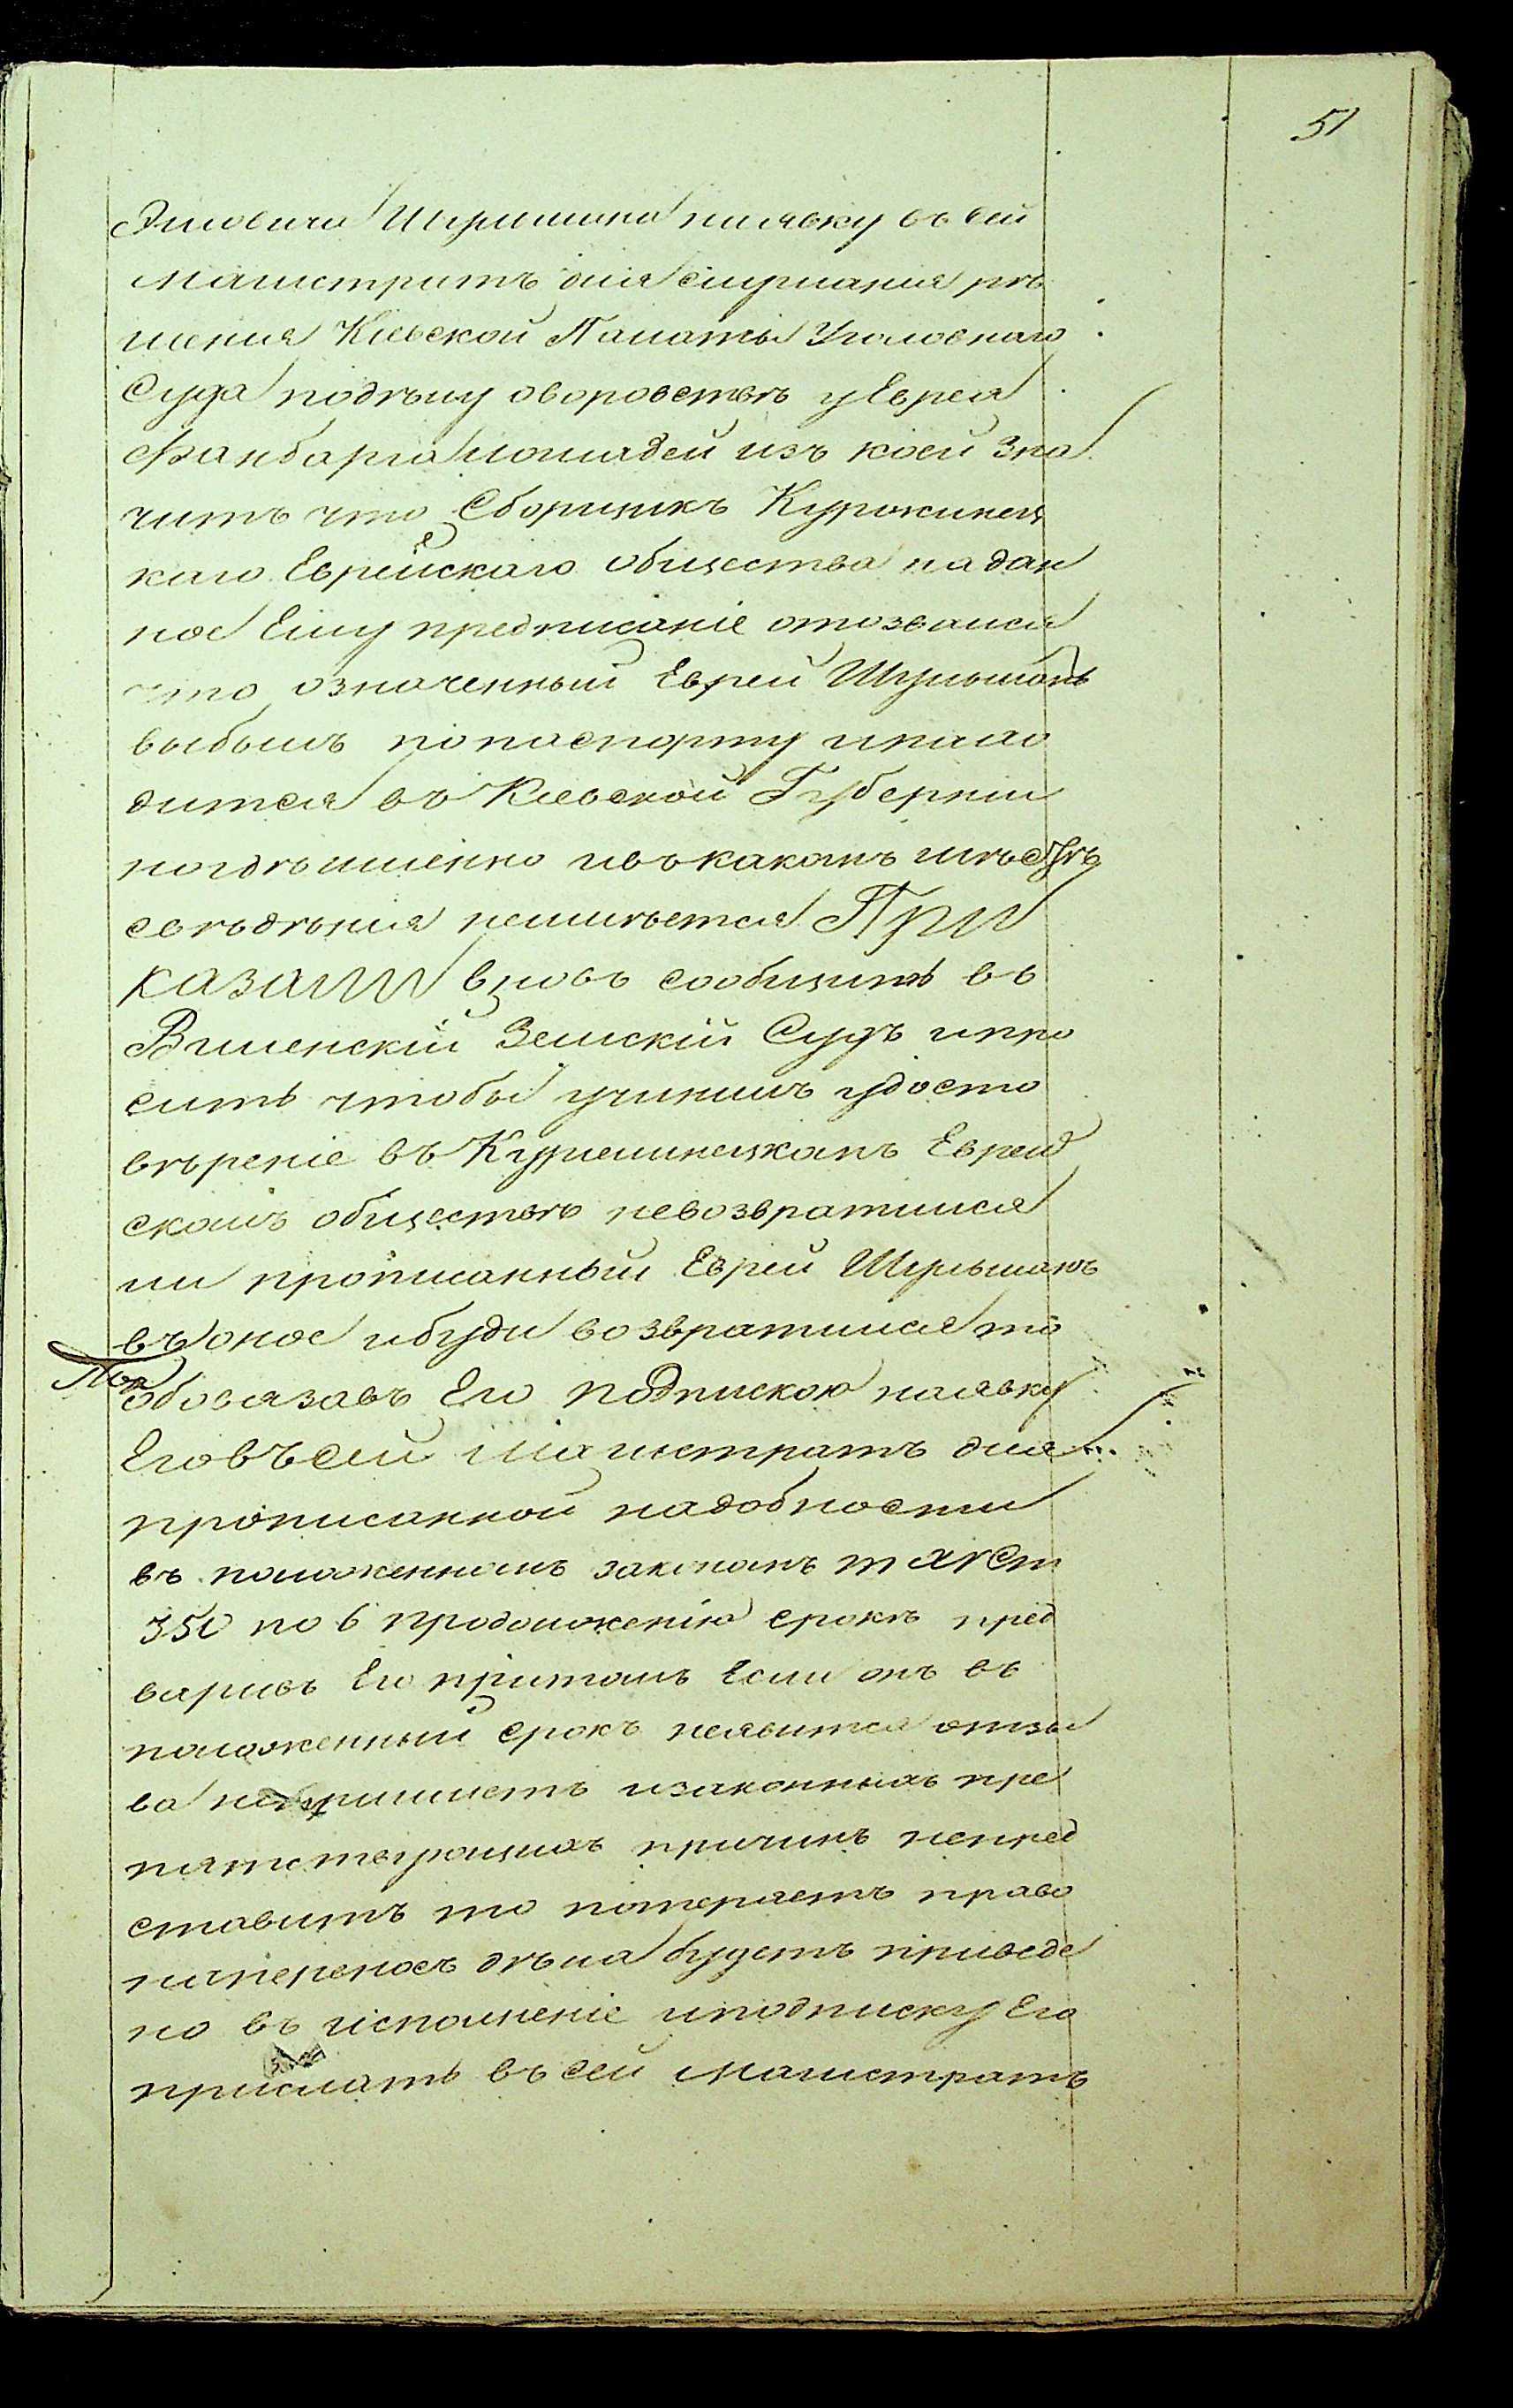 51
Эшовича Шульмана наявку въ сей
Магистратъ для слушания рѣ
шения Киевской Палаты Уголовнаго
Суда подѣлу оворовствѣ уЕврея
лошадей изъ коей зна
читъ что Сборщикъ
каго Еврейскаго общества на дан
ное Ему предписаніе отозвался
что означенный Еврей Шульманъ
выбылъ попаспорту инахо
дится въ Киевской Губерніи
ногдѣ именно ивъкакомъ мѣстѣ
свѣдѣния неимѣется При
казали вновь сообщить въ
Земскій Судъ ипро
сить чтобы учинилъ удосто
вѣреніе въ Еврей
скомъ обществѣ невозвратился
ли прописанный Еврей Шульманъ
въ оное ибуди возвратился то
обовязавъ Его подпискою наявку
Его въ сей Магистратъ для
прописанной надобности
въ положенномъ закономъ т XV Ст
350 по 6 продолженію срокъ пред
варивъ Его притомъ Если онъ въ
положенный срокъ неявится отзы
ва изаконныхъ пре
пятствующихъ причинъ непред
ставитъ то потеряетъ право
наперенос дѣла будетъ приведе
но въ исполненіе иподписку Его
прислать въ сей Магистратъ